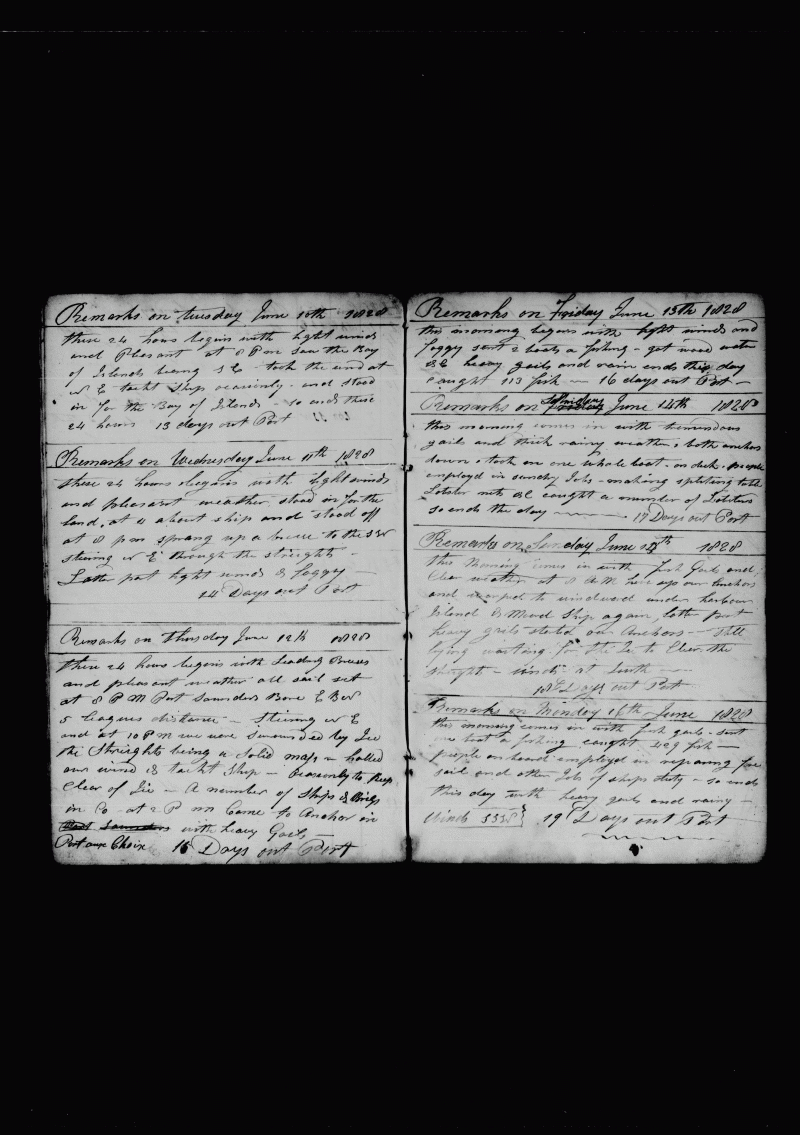 Remarks on tuesday June 10th 1828
these 24 hours begins with light winds
and Pleasant at 8 P m Saw the Bay
of Islands bearing S E - took the wind at
N E tackt Ship occasionly - and stood
in for the Bay of Islands - so ends these
24 hours 13 days out Port
Remarks on Wednesday June 11th 1828
these 24 hours begins with light winds
and pleasant weather stood in for the
land, at 4 about ship and stood off
at 8 p m sprang up a breeze to the S W
stearing N E through the straights -
Latter part light winds & foggy -
14 Days out Port
Remarks on Thursday June 12th 1828
these 24 hours begins with Leading Breeses
and pleasant weather all sail set
at 8 P M Port Saunders Bore E B N
5 leagues distance - stearing N E
and at 10 P M we were surounded by Ice
the Straights being a solid mass - halled
our wind & tackt Ship - occasionly to keep
Clear of Ice - A number of Ships & Brigs
in Co - at 2 P m Came to Anchor in
Port Saunders with heavy Gails -
Port aux Choix 15 Days out Port
Remarks on Friday June 13th 1828
this morning begins with light winds and
foggy sent 2 boats a fishing - get wood water
&c heavy gails and rain ends this day
Caught 113 fish - 16 days out Port -
Remarks on Saturday June 14th 1828
this morning comes in with tremendous
gails and thick rainy weather, both anchors
down - took on one whale boat - on deck - people
employed in sundry Jobs - making splitting table
Lobster nets &c caught a number of Lobsters
so ends the day - 17 Days out Port
Remarks on Sunday June 15th 1828
this Morning comes in with fresh Gails and
Clear weather at 8 A M hove up our Anchors
and warped to windward under harbour
Island & Moord Ship again, latter part
heavy gails - our Anchors - Still
lying waiting for the Ice to Clear the
straight - winds at South -
18 Days out Port
Remarks on Monday 16th June 1828
this morning comes in with fresh gails - sent
one boat a fishing caught 429 fish -
people on board employd in repairing fore
sail and other Jobs of ships duty - so ends
this day with heavy gails and rainy -
Winds SSW 19 Days out Port